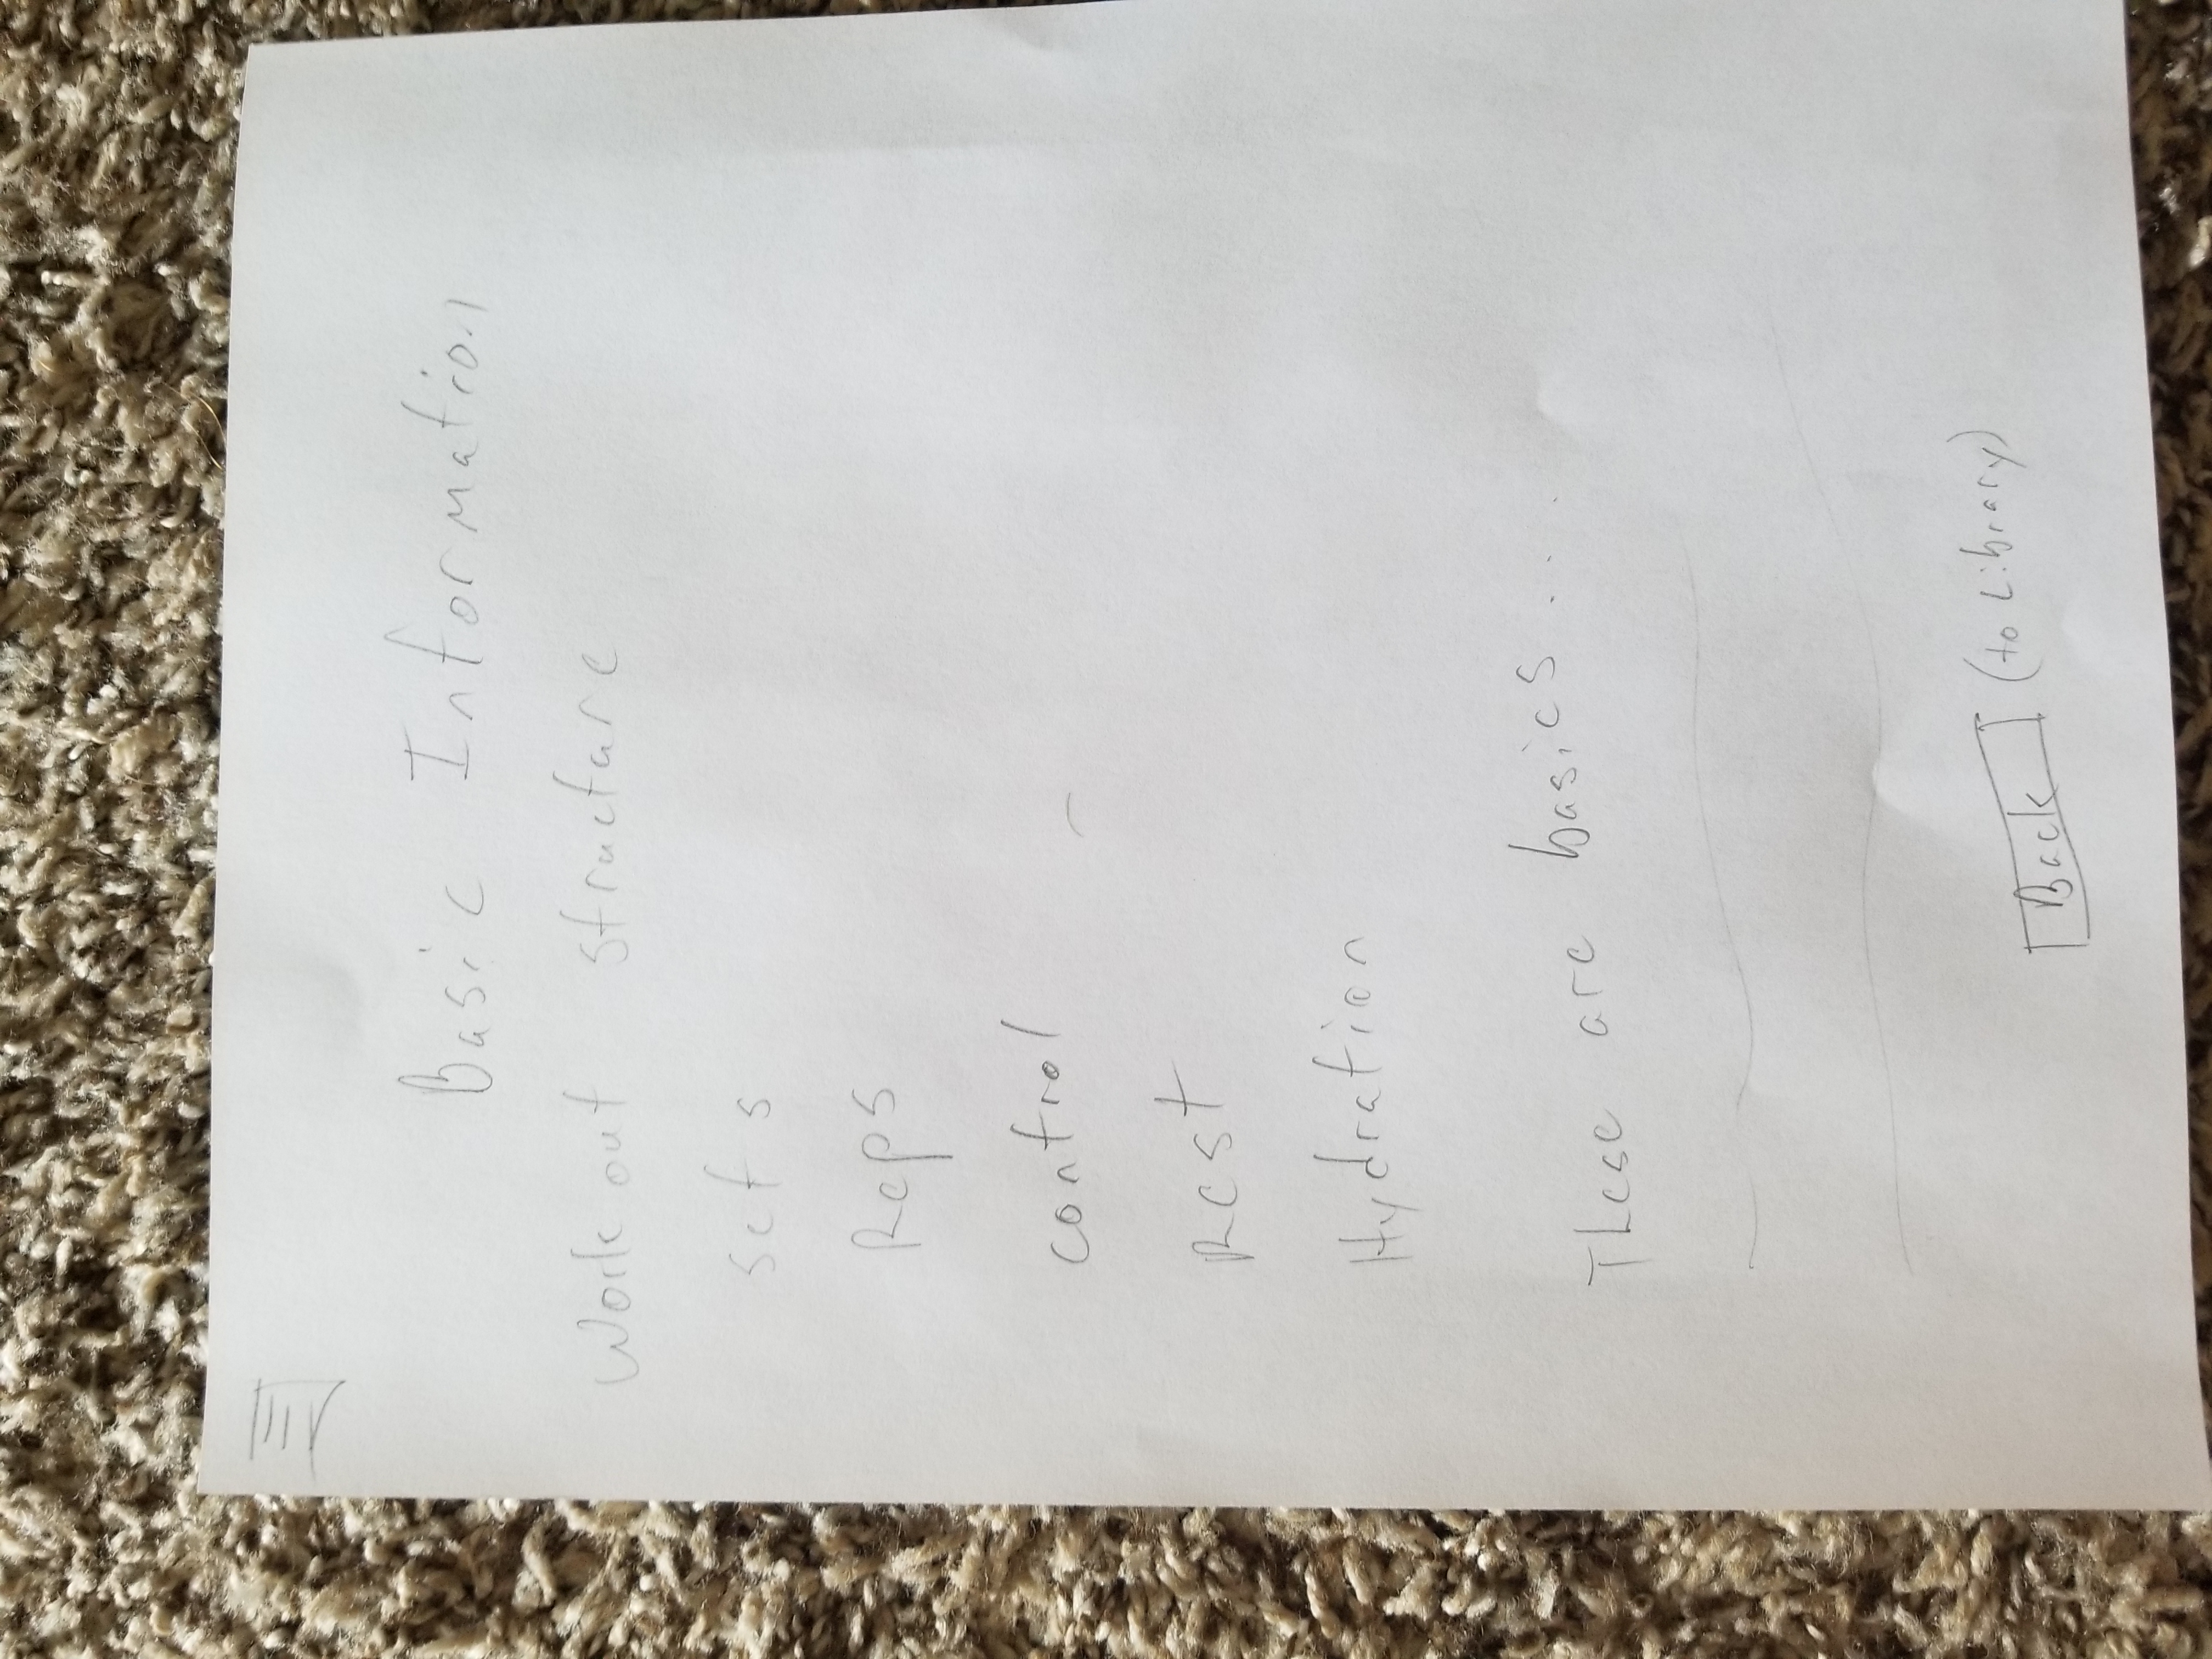 Basic Information
Work out structure
sets
Reps
control
Rest
Hydration
These are basics ....
Back (to Library)